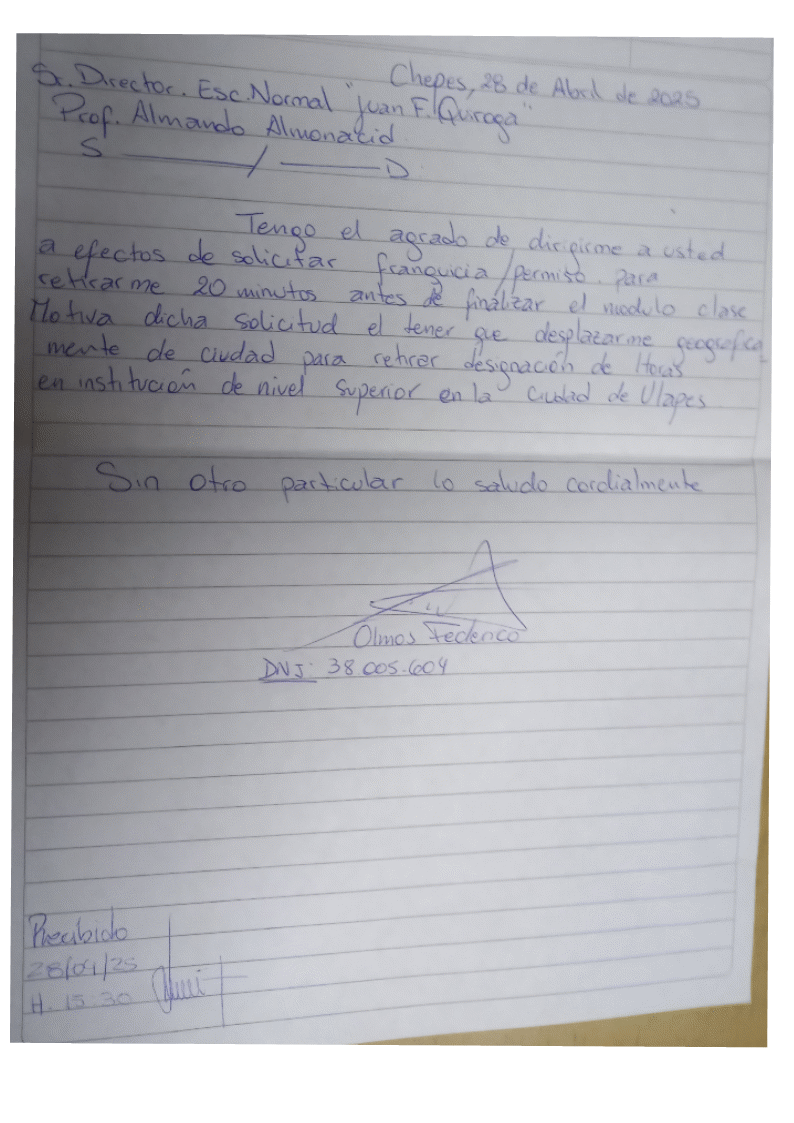 Chepes, 28 de Abril de 2025
Sr. Director. Esc. Normal "Juan F. Quiroga"
Prof. Almando Almonacid.
S ———/ ——— D.
Tengo el agrado de dirigirme a usted
a efectos de solicitar franquicia/permiso. para
retirarme 20 minutos antes de finalizar el modulo clase
Motiva dicha solicitud el tener que desplazarme geografica
mente de ciudad para retirar designación de Horas
en institución de nivel Superior en la Ciudad de Ulapes
Sin otro particular lo saludo cordialmente
Olmos Federico
DNI: 38.005.604
Recibido
28/04/25
H. 15:30